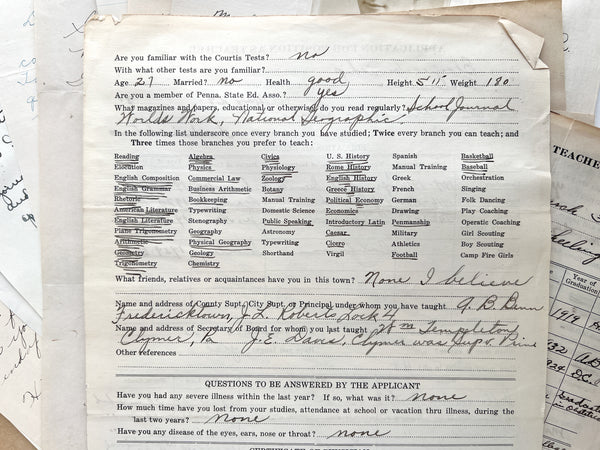 Are you familiar with the Courtis Tests? no
With what other tests are you familiar?
Age 27 Married? no Health good Height 5'11" Weight 180
Are you a member of Penna. State Ed. Asso.? yes
What magazines and papers, educational or otherwise, do you read regularly? School Journal
Worlds Work, National Geographic.
In the following list underscore once every branch you have studied; Twice every branch you can teach; and
Three times those branches you prefer to teach:
Reading Algebra Civics U. S. History Spanish Basketball
Elocution Physics Physiology Rome History Manual Training Baseball
English Composition Commercial Law Zoology English History Greek Orchestration
English Grammar Business Arithmetic Botany Greece History French Singing
Rhetoric Bookkeeping Manual Training Political Economy German Folk Dancing
American Literature Typewriting Domestic Science Economics Drawing Play Coaching
English Literature Stenography Public Speaking Introductory Latin Penmanship Operatic Coaching
Plane Trigonometry Geography Astronomy Caesar Military Girl Scouting
Arithmetic Physical Geography Typewriting Cicero Athletics Boy Scouting
Geometry Geology Shorthand Virgil Football Camp Fire Girls
Trigonometry Chemistry
What friends, relatives or acquaintances have you in this town? None I believe
Name and address of County Supt., City Supt. or Principal under whom you have taught
Fredericktown, J. L. Roberts, Lock 4
Name and address of Secretary of Board for whom you last taught Wm Templeton
Clymer, Pa J. E. Davis, Clymer was Supv. Prin
Other references
QUESTIONS TO BE ANSWERED BY THE APPLICANT
Have you had any severe illness within the last year? If so, what was it? none
How much time have you lost from your studies, attendance at school or vacation thru illness, during the
last two years? none
Have you any disease of the eyes, ears, nose or throat? none
TEACHE
Year of
Graduation
1919